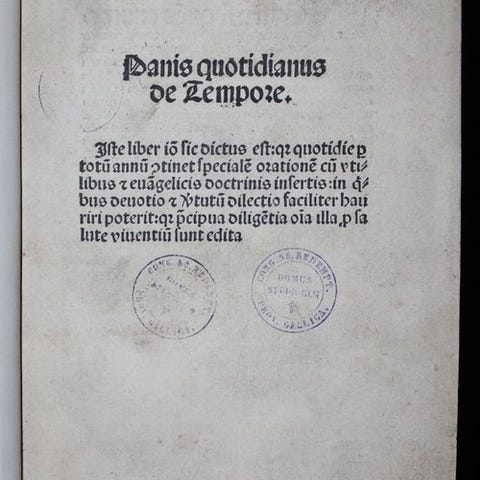 Panis quotidianus
de Tempore.
Iste liber iõ sic dictus est:qꝛ quotidie ꝑ
totũ annũ ↄtinet specialẽ orationẽ cũ vti-
libus ⁊ euãgelicis doctrinis insertis:in q̃-
bus deuotio ⁊ ꝟtutũ dilectio faciliter hau
riri poterit:qꝛ p̃cipua diligẽtia oĩa illa ,ꝓ sa
lute viuentiũ sunt edita
CONG. SS. REDEMPT.
DOMUS
STUDIORUM
PROV. GALLICA.
CONG. SS. REDEMPT.
DOMUS
STUDIORUM
PROV. GALLICA.